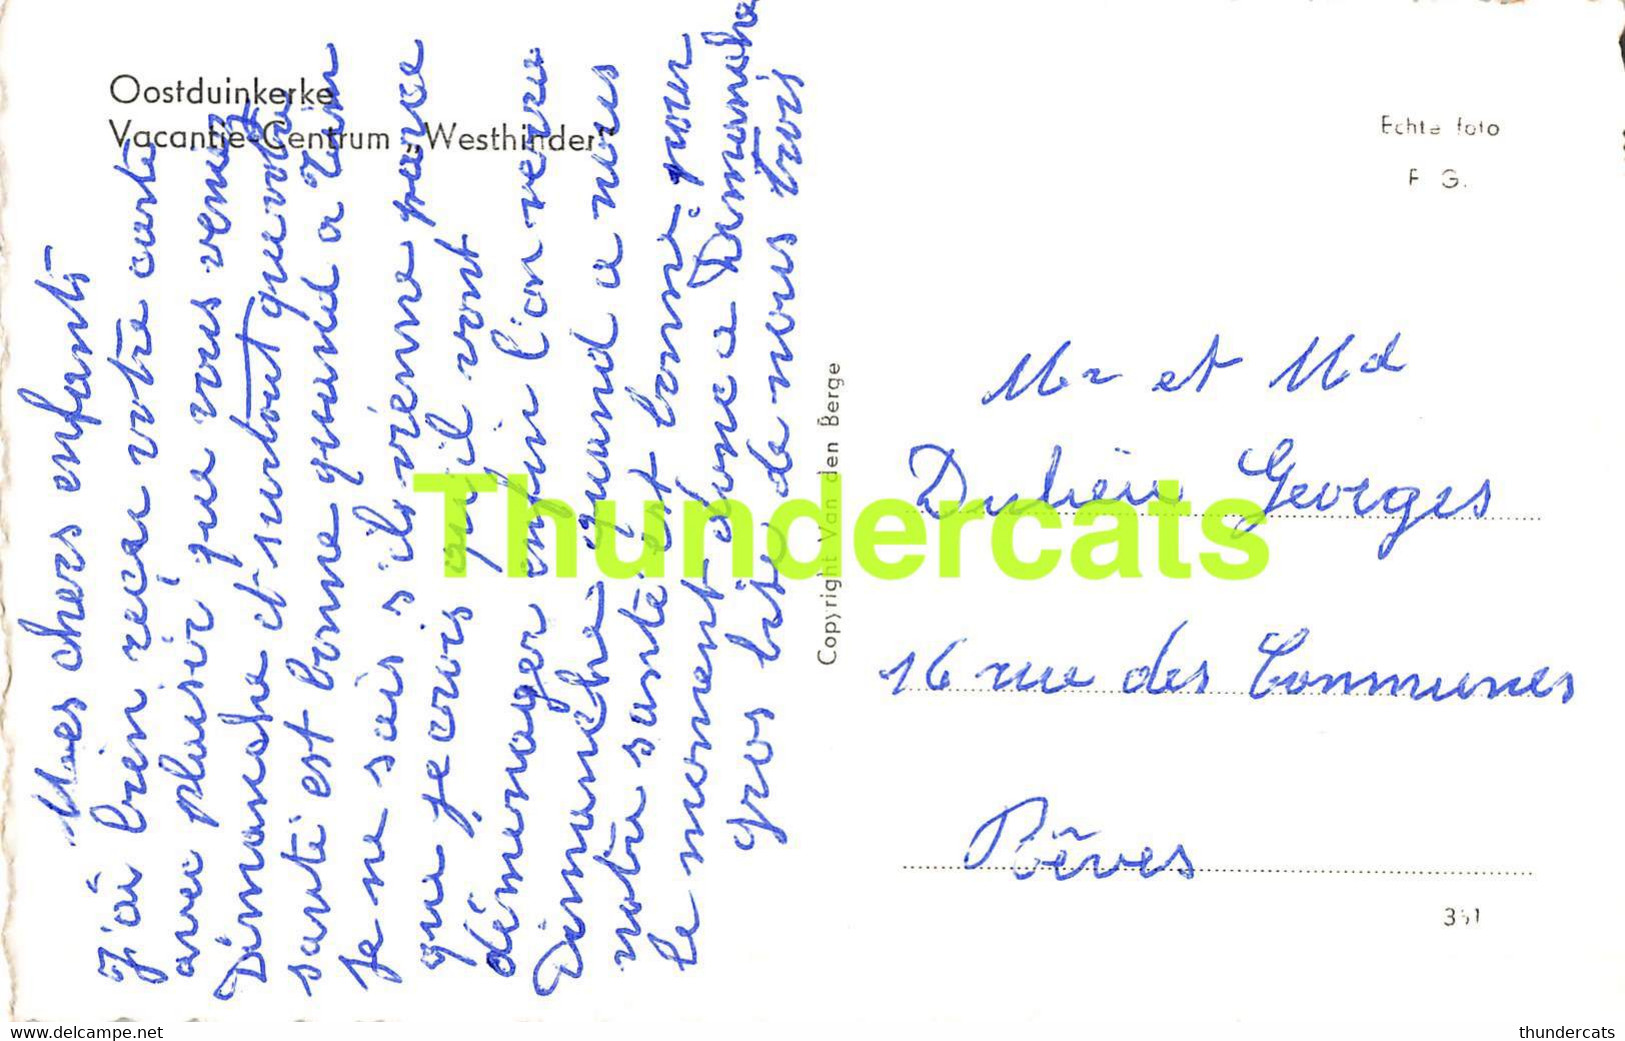 Oostduinkerke
Vacantie-Centrum „Westhinder"
Mes chers enfants
J'ai bien reçu votre carte
avec plaisir que vous venez
Dimanche et surtout que votre
santé est bonne quand a
Je ne sais s'ils vienne parce
que je crois qu'il vont
démenager enfin l'on verra
Dimanche quand a nous
notre santé est bonne pour
le moment donc a Dimanche
gros bise de nous trois
Copyright Van den Berge
Echte foto
Mr et Md
Dulieu Georges
16 rue des Communes
Rêves
Thundercats
www.delcampe.net
thundercats